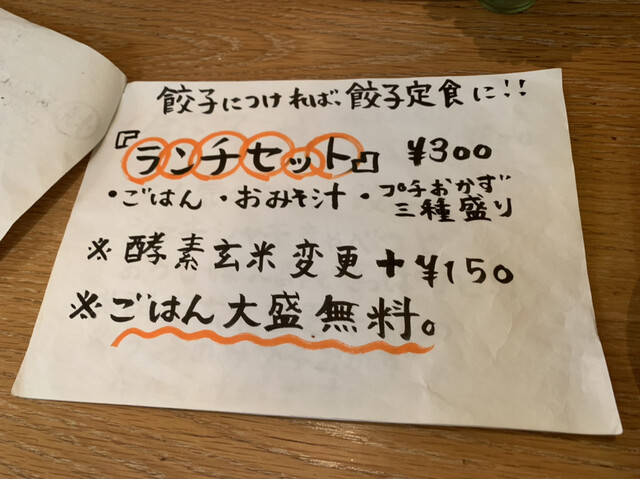 餃子につければ、餃子定食に!!
『ランチセット』 ¥300
・ごはん ・おみそ汁 ・プチおかず三種盛り
※酵素玄米変更+¥150
※ごはん大盛無料。